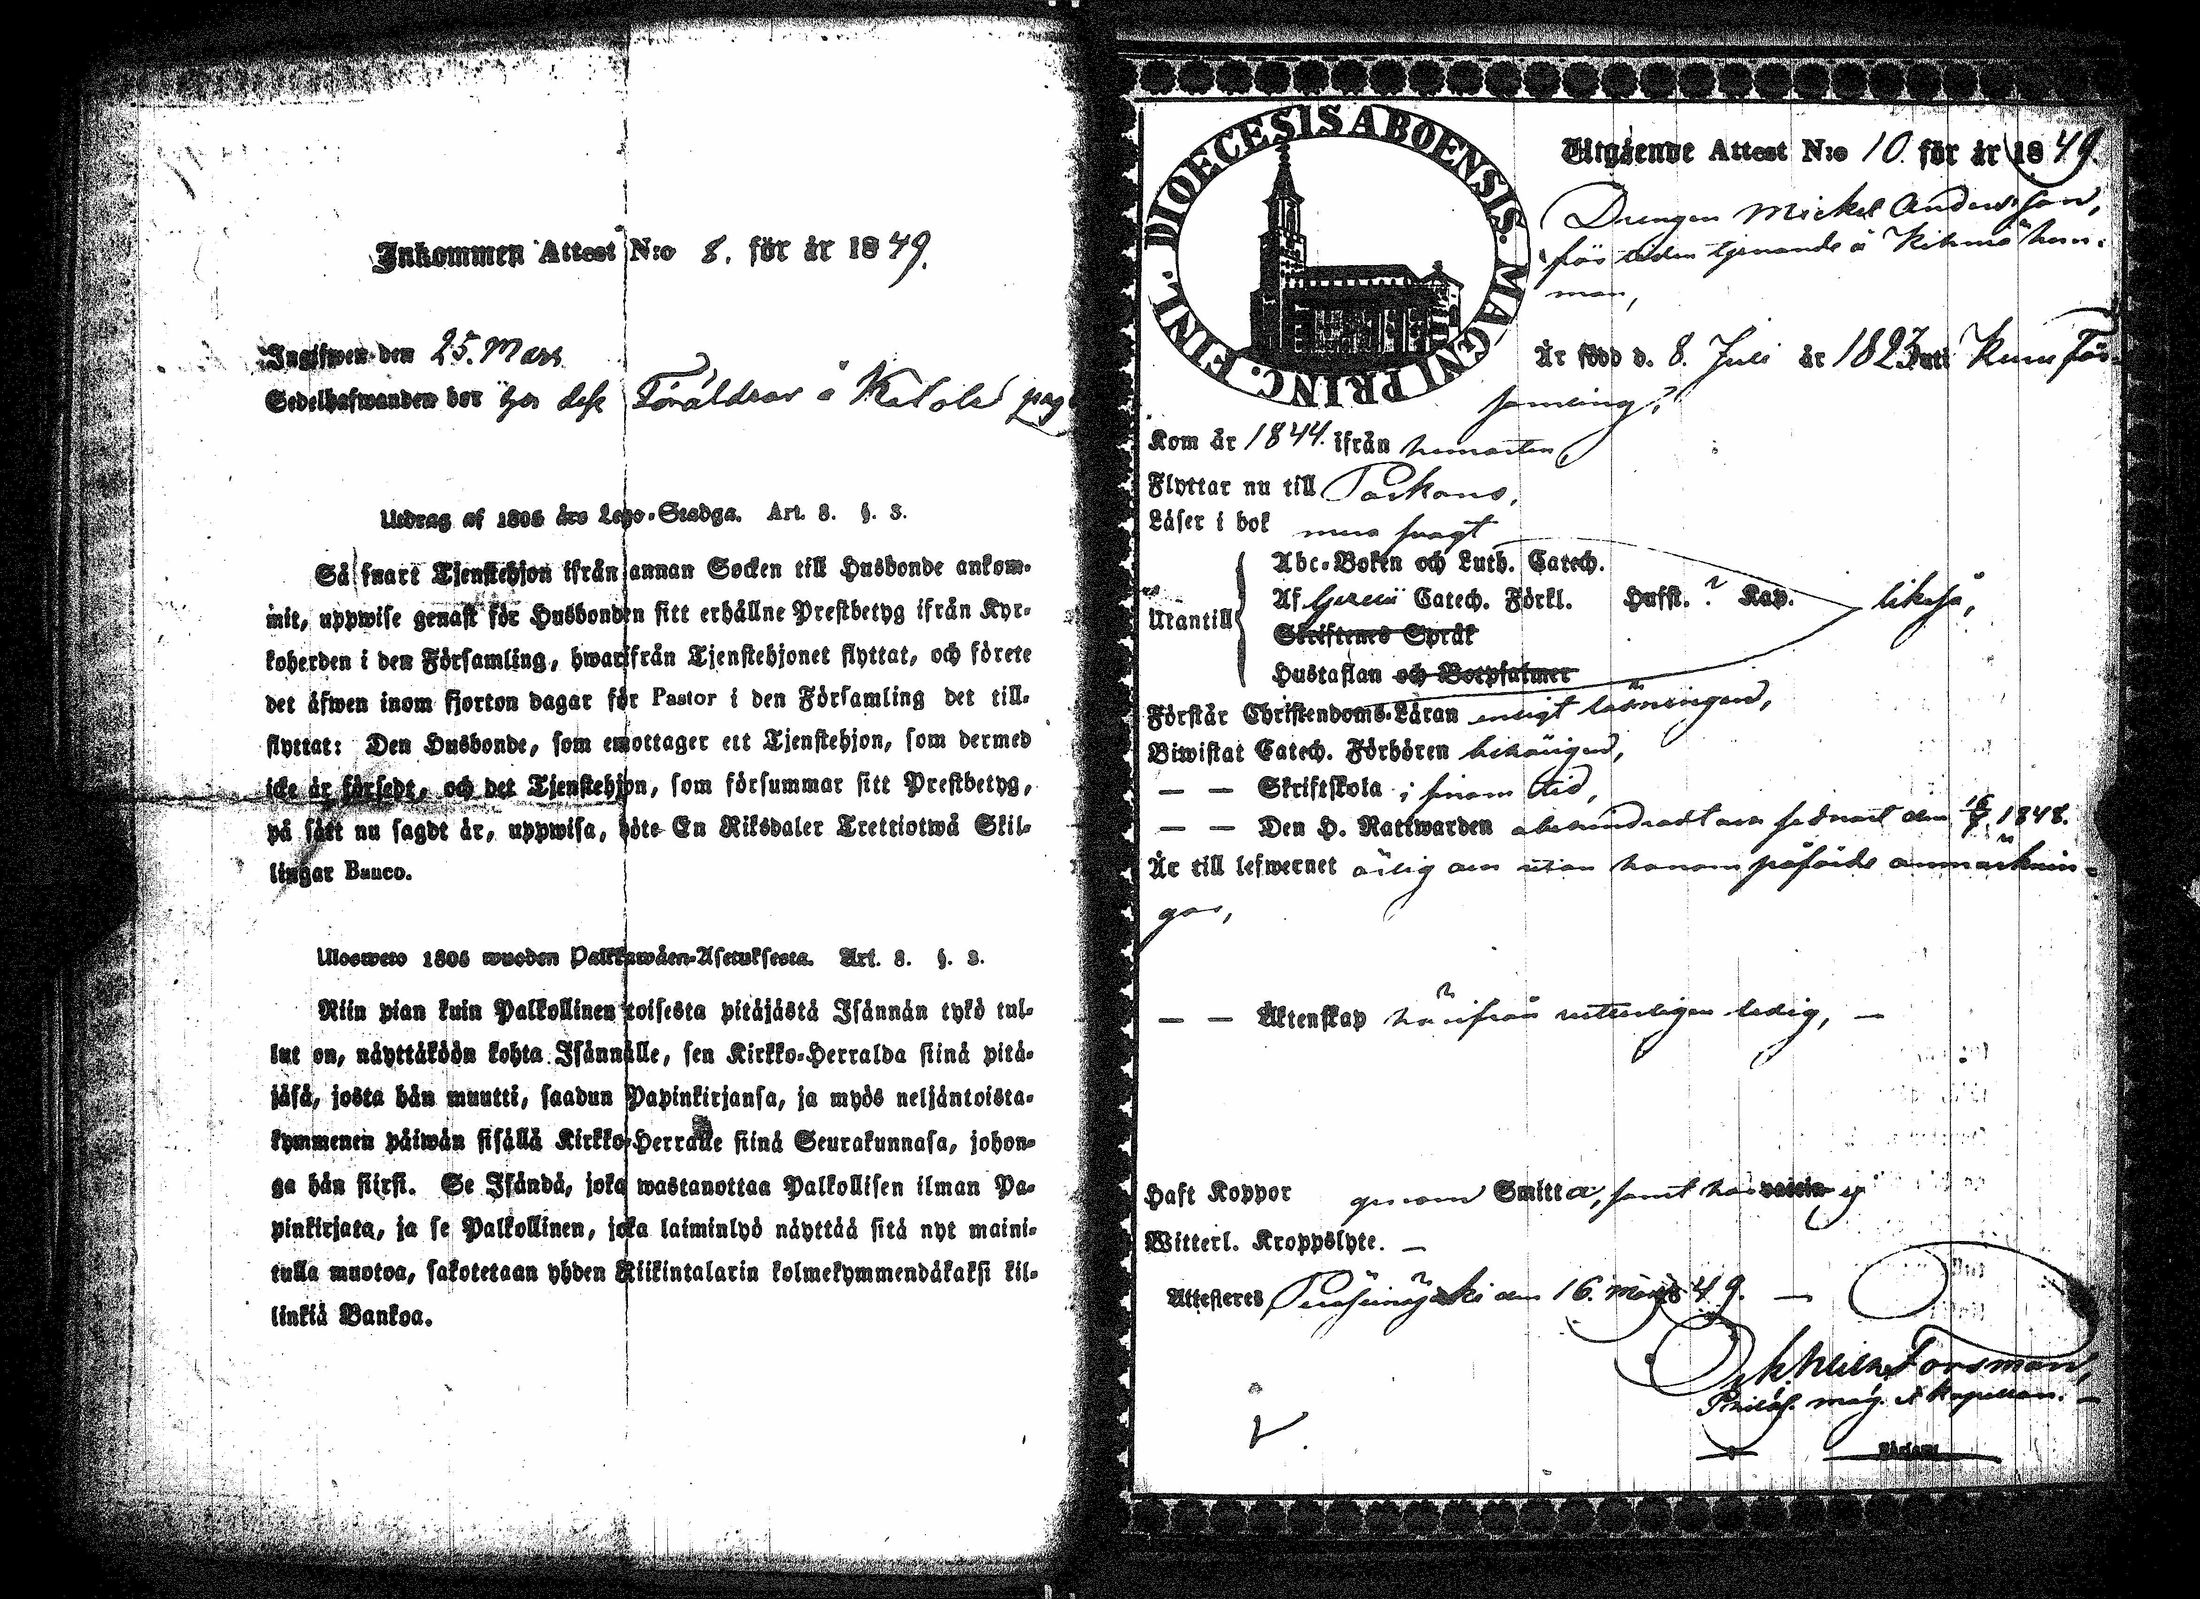 Inkommen Attest N:o 8. för år 1849.
Ingifwen den 25. Mars
Sedelhafwanden bor hos dess Föräldrar å
Utdrag af 1805 års Lego-Stadga. Art. 8. §. 3.
Så snart Tjenstehjon ifrån annan Socken till Husbonde ankom-
mit, uppwise genast för Husbonden sitt erhållne Prestbetyg ifrån Kyr-
koherden i den Församling, hwarifrån Tjenstehjonet flyttat, och förete
det äfwen inom fjorton dagar för Pastor i den Församling det till-
flyttat: Den Husbonde, som emottager ett Tjenstehjon, som dermed
icke är försedt, och det Tjenstehjon, som försummar sitt Prestbetyg,
på sätt nu sagdt är, uppwisa, böte En Riksdaler Trettiotwå Skil-
lingar Banco.
Uloswеto 1805 wuoden Palkkawäen-Asetuksesta. Art. 8. §. 3.
Niin pian kuin Palkollinen toisesta pitäjästä Isännän tykö tul-
lut on, näyttäköön kohta Isännälle, sen Kirkko-Herralda siinä pitä-
jäsä, josta hän muutti, saadun Papinkirjansa, ja myös neljäntoista-
kymmenen päiwän sisällä Kirkko-Herralle siinä Seurakunnasa, johon-
ga hän siirsi. Se Isändä, joka wastanottaa Palkollisen ilman Pa-
pinkirjata, ja se Palkollinen, joka laiminlyö näyttää sitä nyt maini-
tulla muotoa, sakotetaan yhden Riikintalarin kolmekymmendäkaksi kil-
linkiä Bankoa.
DIOECESIS ABOENSIS. MAGNI PRINC. FINL.
Utgående Attest N:o 10. för år 1849.
Drengen Mickel Andersson,
för tiden tjenande å
man,
Är född d. 8. Juli år 1823 uti För-
samling,
Kom år 1844. ifrån hemorten,
Flyttar nu till Parkano,
Läser i bok
Utantill
Abc-Boken och Luth. Catech.
Af Catech. Förkl. Husst. Kap. likaså,
Skriftenes Språk
Hustaflan och Botpsalmer
Förstår Christendoms-Läran enligt läsningen,
Biwistat Catech. Förhören behörigen,
— — Skriftskola i sinom tid,
— — Den H. Nattwarden sednast den 1848.
Är till lefwernet ärlig och utan honom påförde anmärknin-
gar,
— — Äktenskap härifrån veterligen ledig, —
Haft Koppor genom Smitta, samt har vaccin ej
Witterl. Kroppslyte. —
Attesteres Peräseinäjoki den 16. Mars 49. —
Forsman,
Philos. mag. Kapellan. —